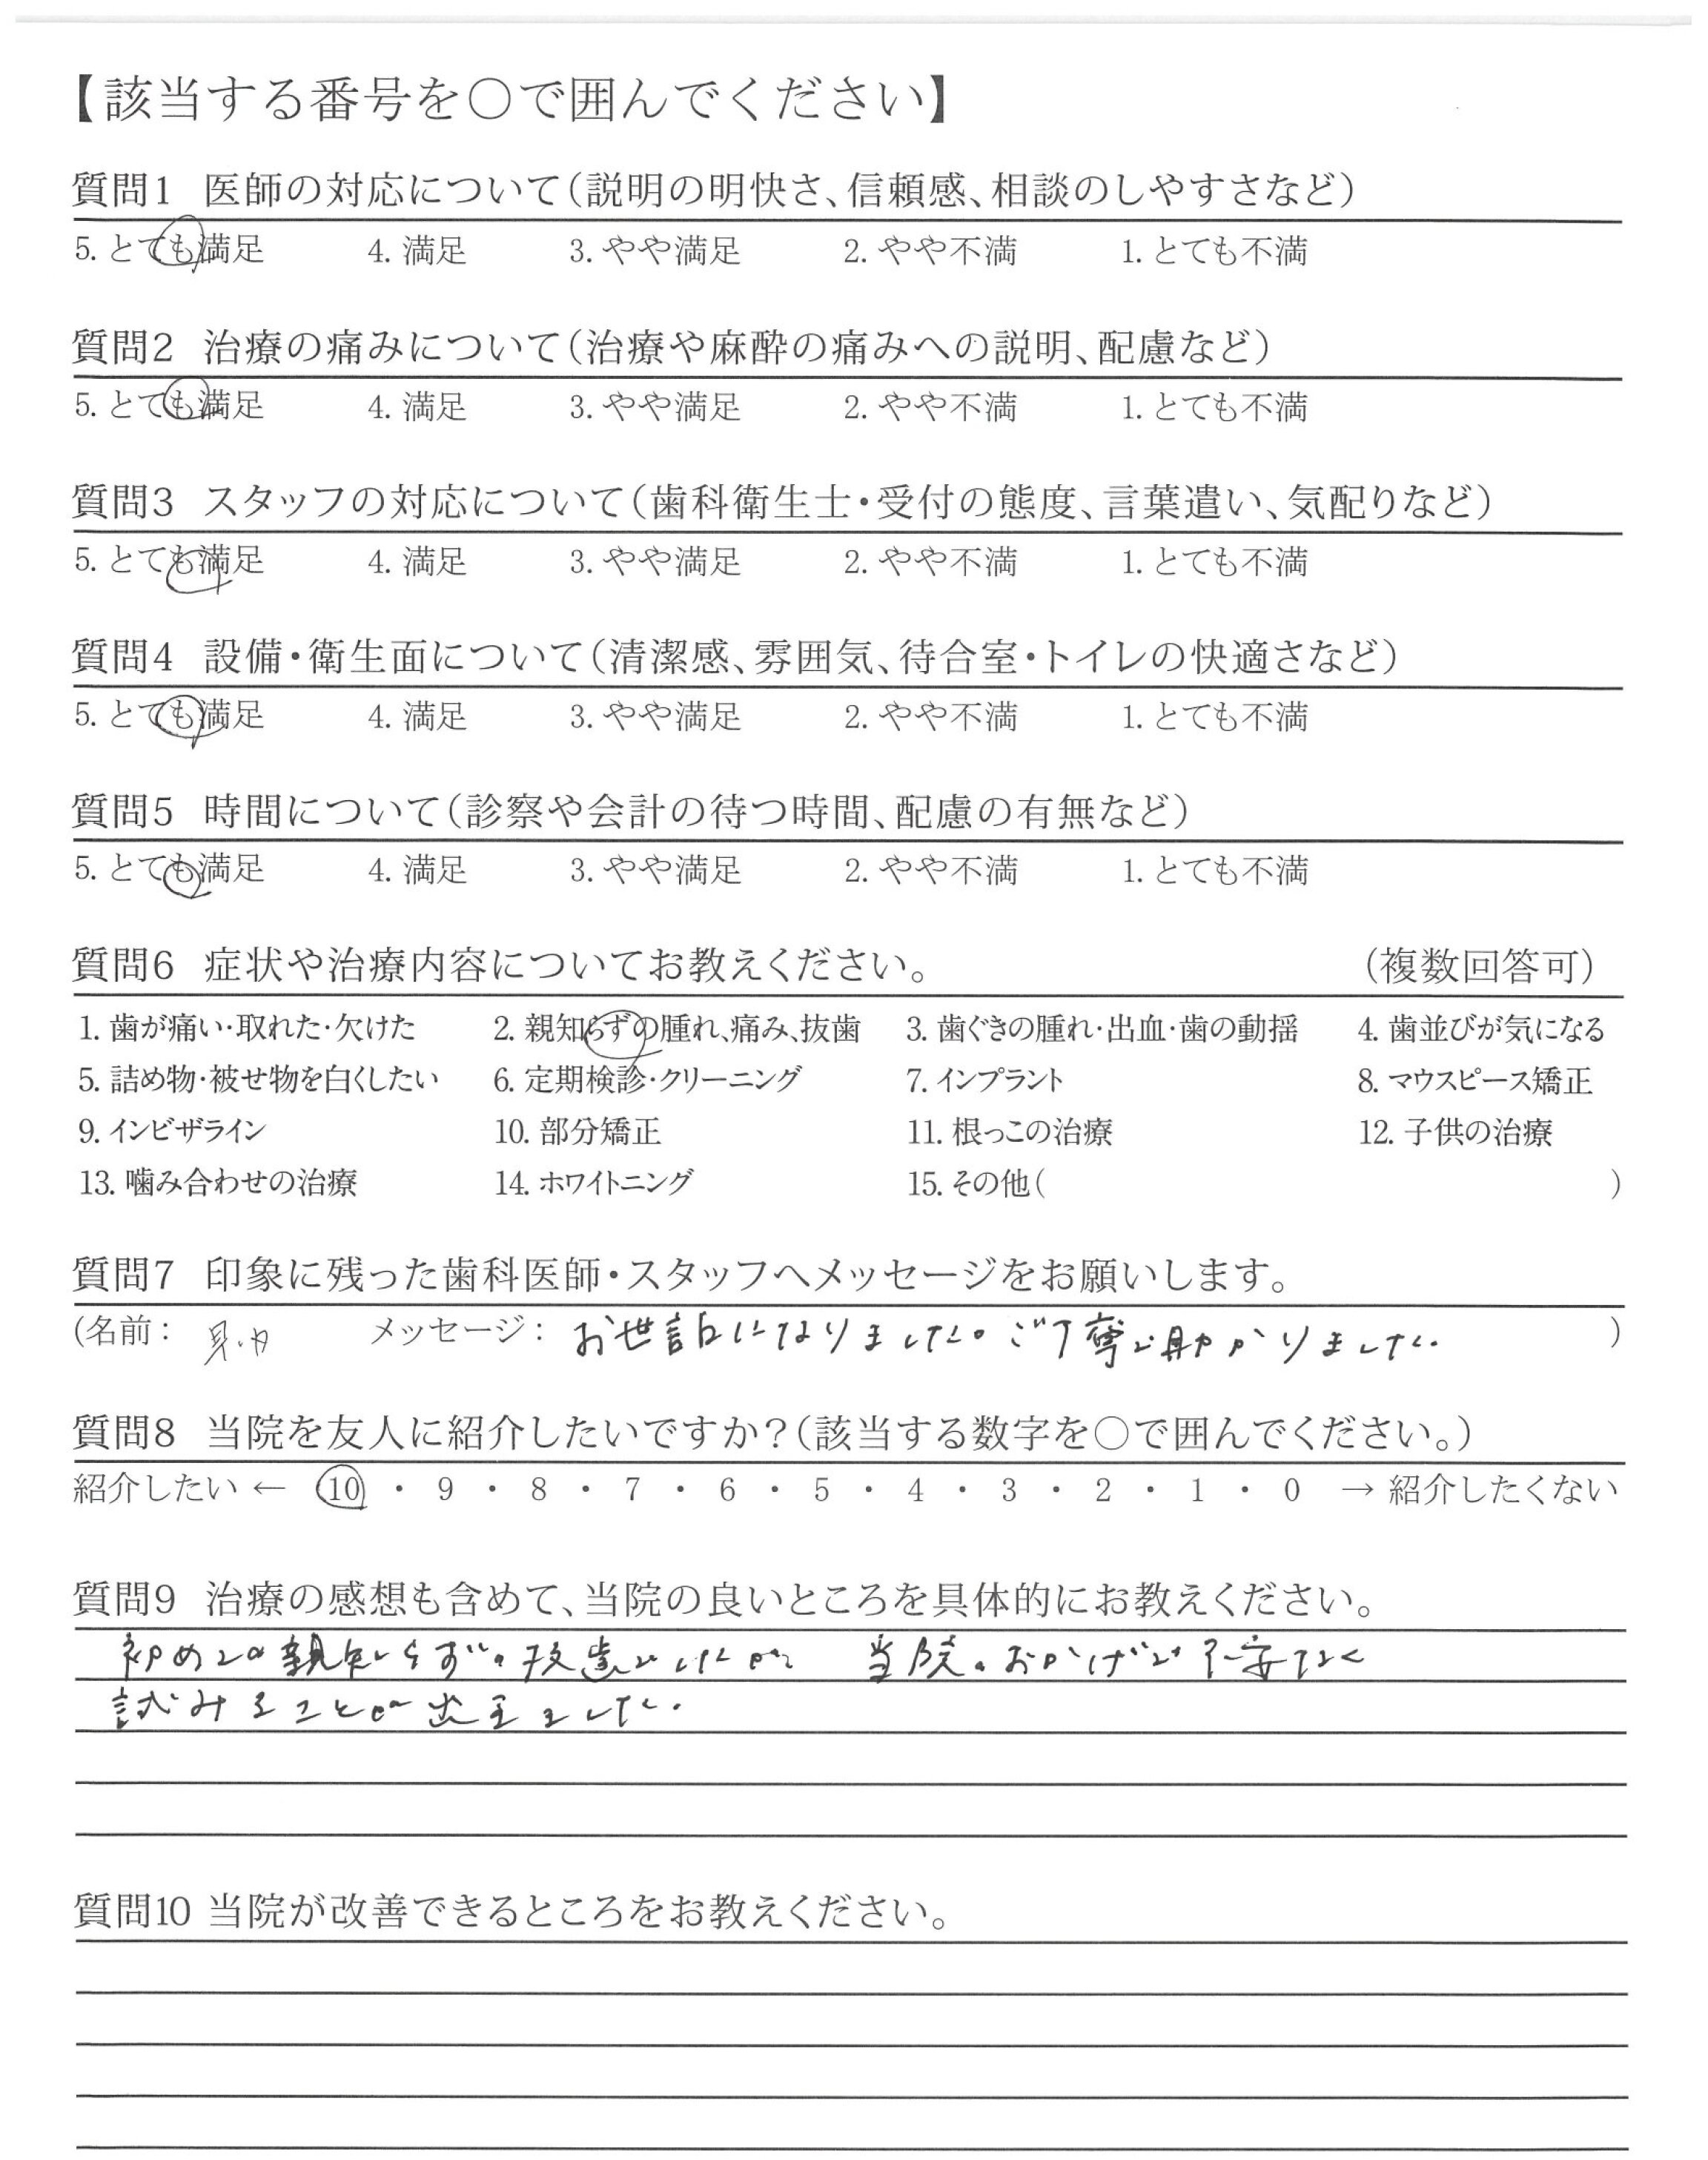 【該当する番号を○で囲んでください】
質問1 医師の対応について(説明の明快さ、信頼感、相談のしやすさなど)
5. とても満足 4. 満足 3. やや満足 2. やや不満 1. とても不満
質問2 治療の痛みについて(治療や麻酔の痛みへの説明、配慮など)
5. とても満足 4. 満足 3. やや満足 2. やや不満 1. とても不満
質問3 スタッフの対応について(歯科衛生士・受付の態度、言葉遣い、気配りなど)
5. とても満足 4. 満足 3. やや満足 2. やや不満 1. とても不満
質問4 設備・衛生面について(清潔感、雰囲気、待合室・トイレの快適さなど)
5. とても満足 4. 満足 3. やや満足 2. やや不満 1. とても不満
質問5 時間について(診察や会計の待つ時間、配慮の有無など)
5. とても満足 4. 満足 3. やや満足 2. やや不満 1. とても不満
質問6 症状や治療内容についてお教えください。 (複数回答可)
1. 歯が痛い・取れた・欠けた 2. 親知らずの腫れ、痛み、抜歯 3. 歯ぐきの腫れ・出血・歯の動揺 4. 歯並びが気になる
5. 詰め物・被せ物を白くしたい 6. 定期検診・クリーニング 7. インプラント 8. マウスピース矯正
9. インビザライン 10. 部分矯正 11. 根っこの治療 12. 子供の治療
13. 噛み合わせの治療 14. ホワイトニング 15. その他( )
質問7 印象に残った歯科医師・スタッフへメッセージをお願いします。
(名前: メッセージ: お世話になりました。ご丁寧で助かりました。 )
質問8 当院を友人に紹介したいですか?(該当する数字を○で囲んでください。)
紹介したい ← 10 ・ 9 ・ 8 ・ 7 ・ 6 ・ 5 ・ 4 ・ 3 ・ 2 ・ 1 ・ 0 → 紹介したくない
質問9 治療の感想も含めて、当院の良いところを具体的にお教えください。
初めての親知らずの抜歯でしたが 当院のおかげで不安なく
試みることが出来ました。
質問10 当院が改善できるところをお教えください。